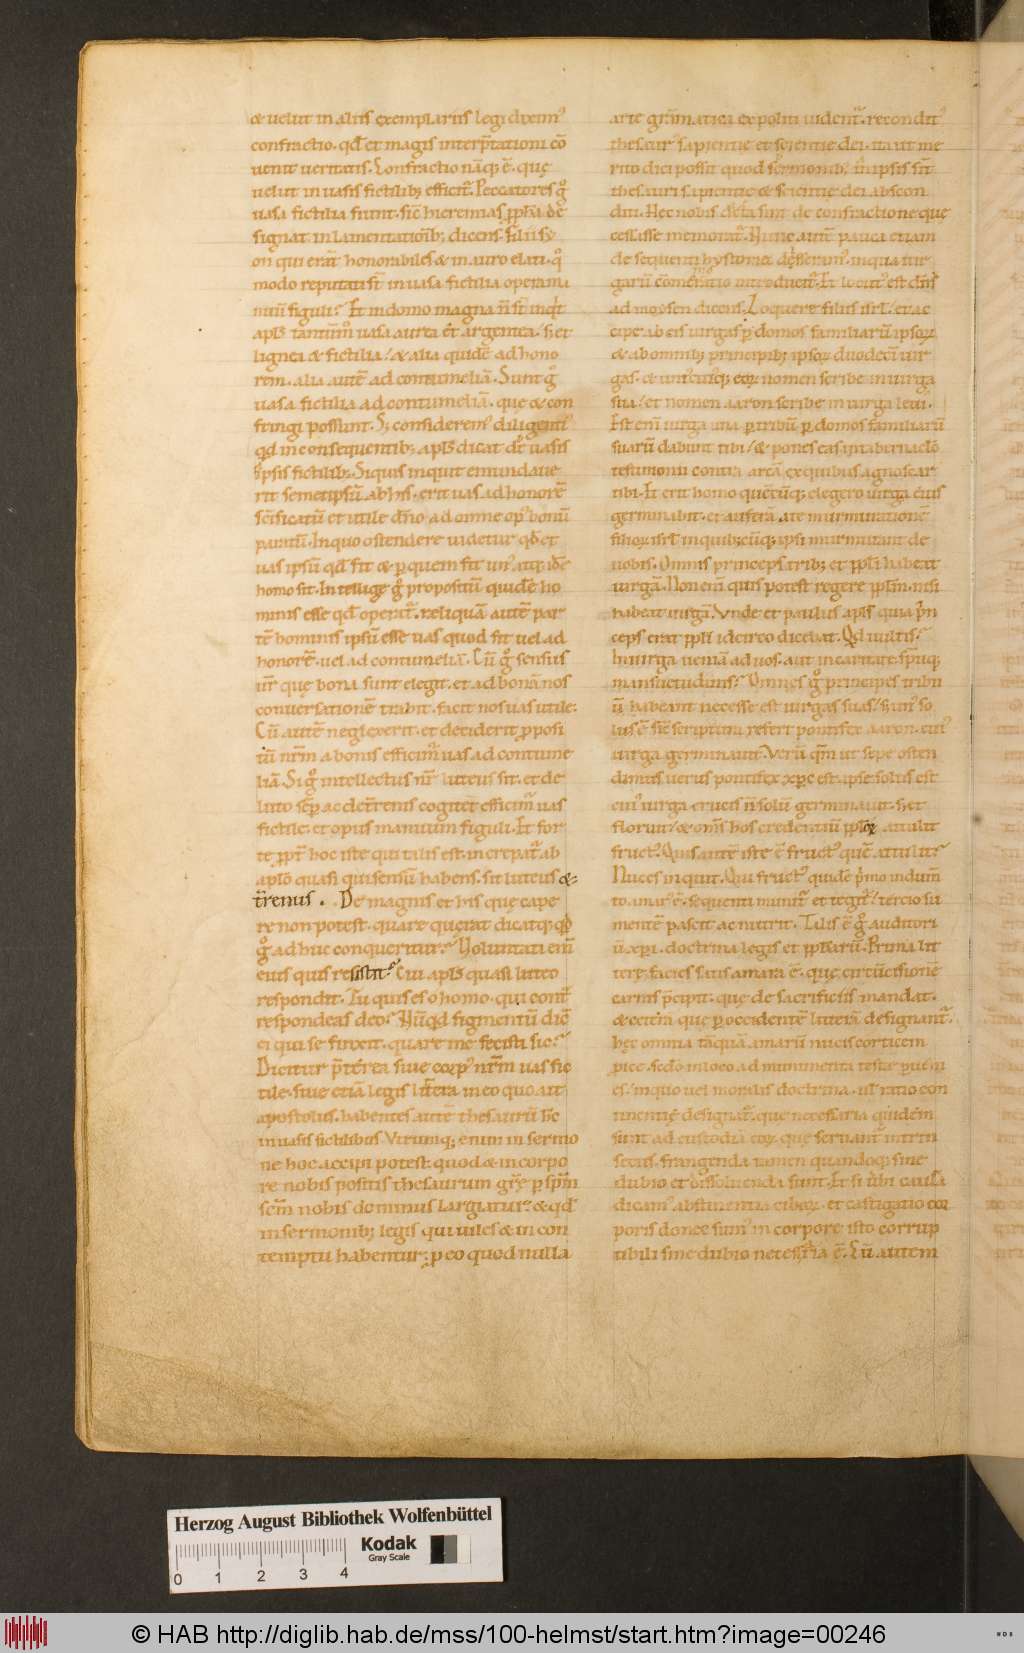 & uelut in aliis exemplariis legi diximꝰ
confractio. qđ et magis interp̄tationi cō
uenit ueritatis. Confractio nāq; ē. quę
uelut in uasis fictilib; efficit̄. Peccatores gͦ
uasa fictilia fiunt. sic̄ hieremias ꝓph̄a de
signat in lamentationib; dicens. filii sy
on qui erāt honorabiles & in auro elati. qͦ
modo reputati st̄ in uasa fictilia opera ma
nuū figuli? Et in domo magna n̄ st̄ inq̇t
apl̄s tantūmͦ uasa aurea et̄ argentea / s; et
lignea & fictilia / & alia quidē ad hono
rem. alia autē ad contumeliā. Sunt gͦ
uasa fictilia ad contumeliā. quę & con
fringi possunt. S; consideremꝰ diligentiꝰ
qđ in consequentib; apl̄s dicat de uasis
ipsis fictilib;. Siquis inquit emundaue
rit semetipsū ab his. erit uas ad honorē
sc̄ificatū et utile dn̄o ad omne opꝰ bonū
paratū. In quo ostendere uidetur qđ et
uas ipsū qđ fit & ꝑ quem fit unꝰ atq; idē
homo sit. Intellige gͦ propositū quidē ho
minis esse qđ operat̄. reliquā autē par
tē hominis ipsū esse uas quod fit uel ad
honorē. uel ad contumeliā. Cū gͦ sensus
nr̄ quę bona sunt elegit. et ad bonā nos
conuersationē trahit. facit nos uas utile;
Cū autē neglexerit. et deciderit ꝓposi
tū nr̄m a bonis efficimꝰ uas ad contume
liā. Si gͦ intellectus nr̄ luteus sit. et de
luto semp ac de terrenis cogitet efficimꝰ uas
fictile. et opus manuum figuli. Et for
te ꝓpt̄ hoc iste qui talis est. increpat̄ ab
aplō quasi qui sensū habens. sit luteus &
t̄renus. De magnis et his quę cape
re non potest. quare quęrat dicatq; qđ
gͦ adhuc conqueritur? Voluntati em̄
eius quis resistit? Cui apl̄s quasi luteo
respondit. Tu quis es o homo. qui cont̄
respondeas deo? Nūqđ figmentū dic̄
ei qui se finxit. quare me fecisti sic?
Dicitur p̄terea siue corpꝰ nr̄m uas fic
tile. siue etiā legis litt̄era in eo quo ait
apostolus. habentes autē thesaurū hc̄
in uasis fictilibus. Utrumq; enim in sermo
ne hoc accipi potest. quod & in corpo
re nobis positis thesaurum gr̄ę ꝑ sp̄m
sc̄m nobis dominus largiatur. & qđ
in sermonib; legis qui uiles & in con
temptu habentur; ꝑ eo quod nulla
arte grāmatica expoliti uident̄. recondit̄
thesaur sapientie et scientie dei. ita ut me
rito dici possit quod sermonib; in ipsis st̄
thesauri sapientie & scientie dei abscon
diti. Hec nobis dicta sint de confractione quę
cessisse memorat̄. Nunc autē pauca etiam
de sequenti hystoria disseramꝰ. in qua uir
garū comparatio introducit̄. Et locutꝰ est dn̄s
ad moysen dicens. Loquere filiis isrl̄ / et ac
cipe ab eis uirgas ꝑ domos familiarū ipsoꝝ
& ab omnib; principib; ipsoꝝ duodeci uir
gas. et uniꝰcuiꝰq; eoꝝ nomen scribe in uirga
sua / et nomen aaron scribe in uirga leui.
Est enī uirga una ꝑ tribū ꝑ domos familiarū
suarū dabunt tibi / & pones eas in tabernaclō
testimonii contra arcā ex quibus agnoscar
tibi. Et erit homo quēcūq; elegero uirga eius
germinabit. et auferā a te murmurationē
filioꝝ isrl̄ in quibuscūq; ipsi murmurant de
uobis. Omnis princeps tribꝰ et ꝓpli habeat
uirgā. Non enī quis potest regere ꝓplm. nisi
habeat uirgā. Vnde et paulus apl̄s quia prin
ceps erat ꝓpli idcirco dicebat. Qđ uultis?
In uirga ueniā ad uos. aut in caritate. spūq;
mansuetudinis? Omnes gͦ principes tribu
ū habeant necesse est uirgas suas / s; unꝰ so
lus ē sic̄ scriptura refert pontifex aaron. cuiꝰ
uirga germinauit. Verū qm̄ ut sepe osten
dimus uerus pontifex xp̄c est. ipse solus est
cuiꝰ uirga crucis n̄ solū germinauit. s; et
floruit / & om̄s hos credentiū ꝓploꝝ attulit
fructꝰ. Quis autē iste ē fructꝰ quē attulit?
Nuces inquit. Qui fructꝰ quidē primo indum̄
to. amarꝰ ē. sequenti munit̄ et tegit̄ / tercio su
mentē pascit ac nutrit. Talis ē gͦ auditori
ū xp̄i. doctrina legis et ꝓph̄arū. Prima lit
terę facies satis amara ē. quę circūcisionē
carnis p̄cipit. quę de sacrificiis mandat.
& cetera quę ꝑ occidentē litterā designant̄.
hęc omnia tāquā amarū nucis corticem
ꝓice. scdō in loco ad munimenta testę peruen
es / in quo uel moralis doctrina. ul̄ ratio con
tinentię designat̄. que necessaria quidem
sunt ad custodiā eoꝝ quę seruant̄ intrin
secus. frangenda tamen quandoq; sine
dubio et dissoluenda sunt. Et si ubi causa
dicamꝰ abstinentia ciboꝝ. et castigatio cor
poris donec sumꝰ in corpore isto corrup
tibili sine dubio necessaria ē. Cū autem
Herzog August Bibliothek Wolfenbüttel
Kodak
Gray Scale
0 1 2 3 4
© HAB http://diglib.hab.de/mss/100-helmst/start.htm?image=00246
HAB